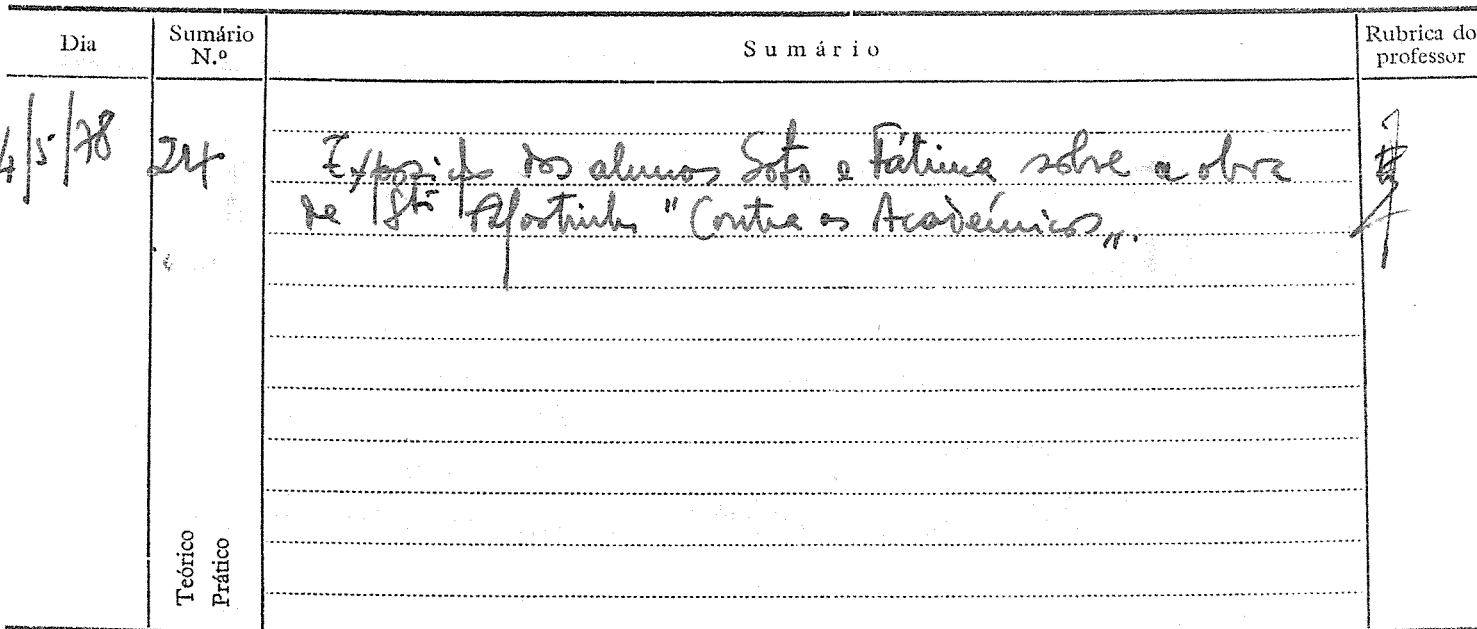 Dia
Sumário
N.º
Sumário
Rubrica do
professor
4/5/78
24
Exposição dos alunos Soto e Fátima sobre a obra
de Stº Agostinho "Contra os Académicos".
Teórico
Prático